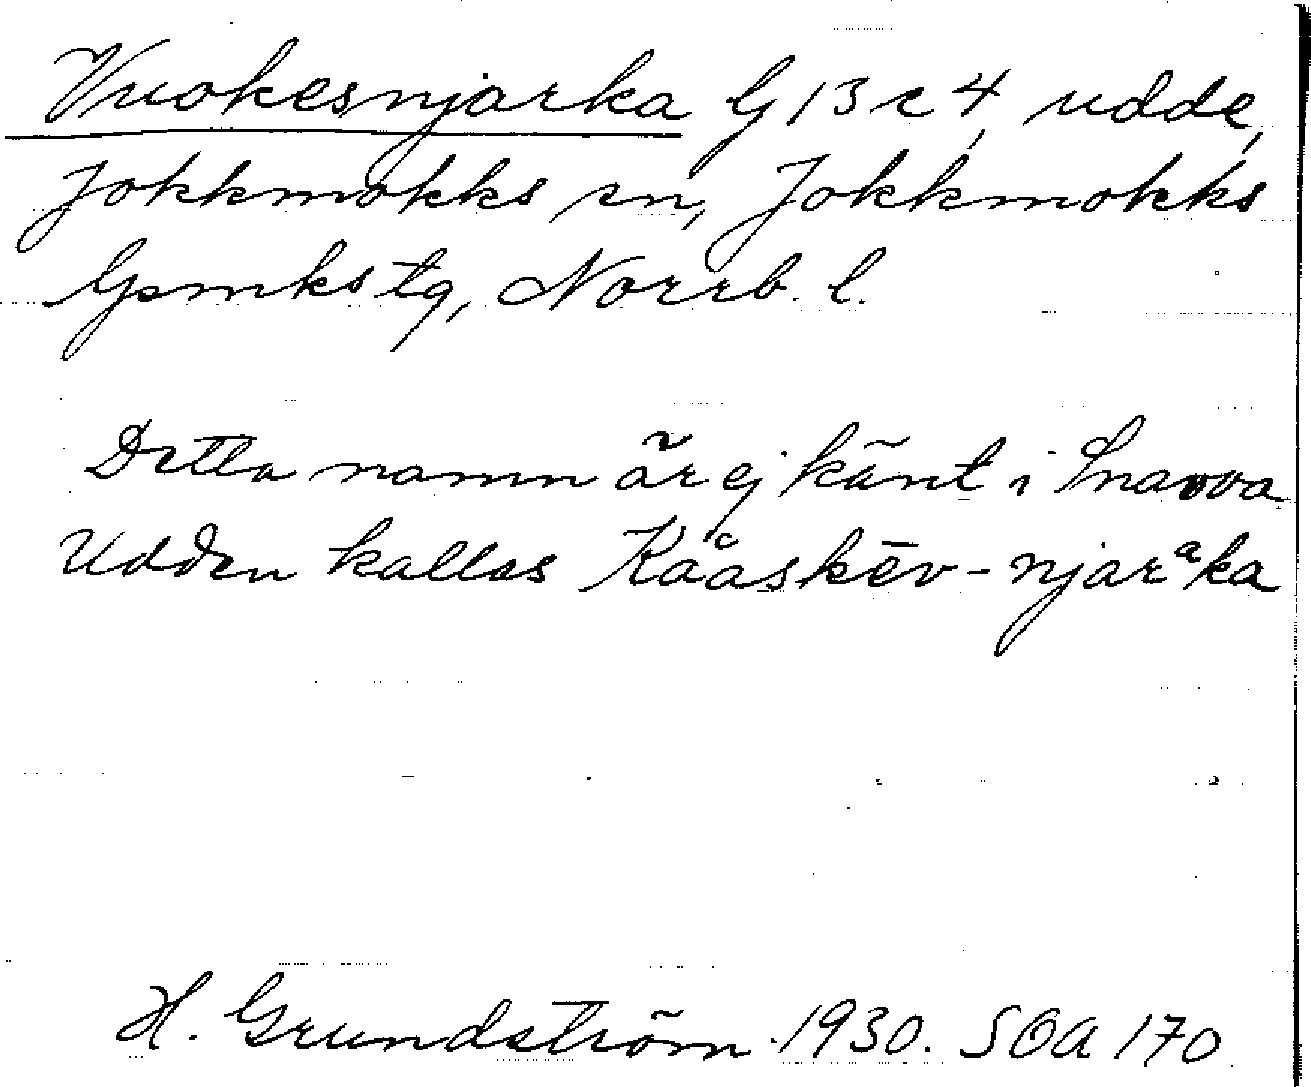 Vuokesnjarka G 13 c 4, udde,
Jokkmokks sn, Jokkmokks
lpmks tg, Norrb. l.
Detta namn är ej känt i Snavva
Udden kallas Kååskēv-njarᵃka
H. Grundström 1930. SOA 170